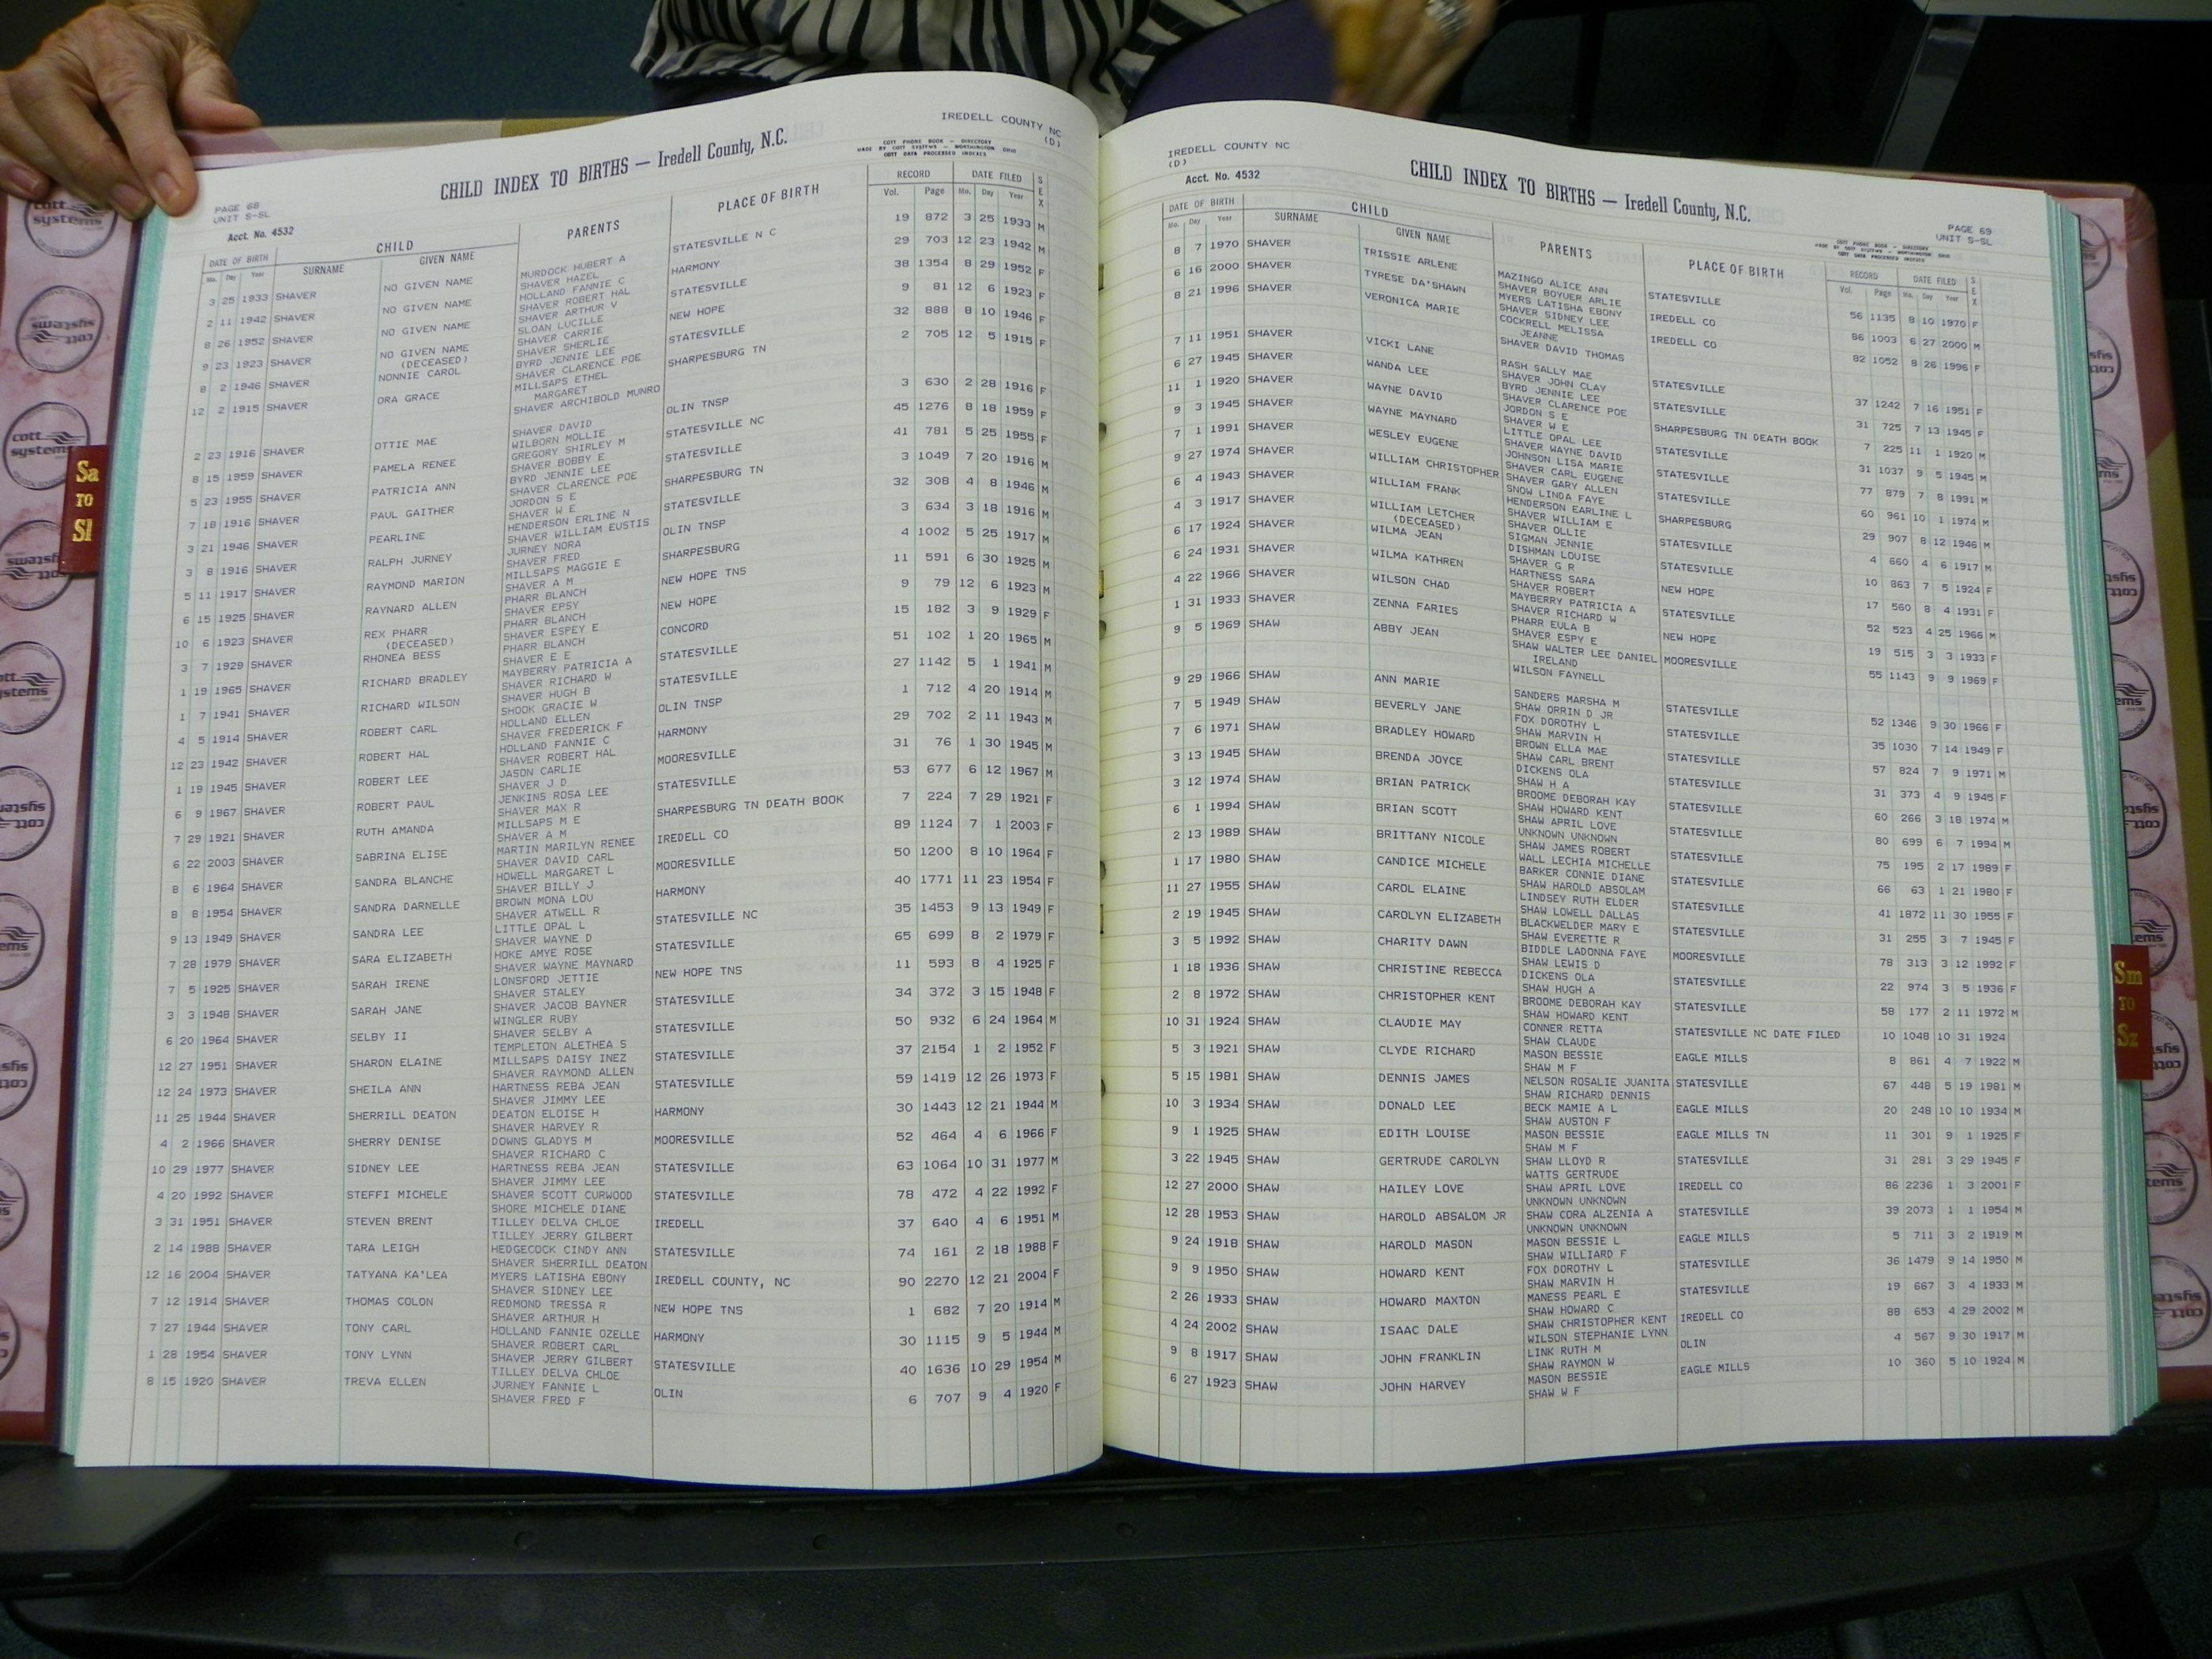 IREDELL COUNTY NC
(D)
CHILD INDEX TO BIRTHS — Iredell County, N.C.
COTT PHONE BOOK — DIRECTORY
MADE BY COTT SYSTEMS — WORTHINGTON, OHIO
COTT DATA PROCESSED INDEXES
PAGE 68
UNIT S-SL
Acct. No. 4532
DATE OF BIRTH CHILD PARENTS PLACE OF BIRTH RECORD DATE FILED SEX
Mo. Day Year SURNAME GIVEN NAME Vol. Page Mo. Day Year
3 25 1933 SHAVER NO GIVEN NAME MURDOCK HUBERT A STATESVILLE N C 19 872 3 25 1933 M
SHAVER HAZEL
2 11 1942 SHAVER NO GIVEN NAME HOLLAND FANNIE C HARMONY 29 703 12 23 1942 M
SHAVER ROBERT HAL
8 26 1952 SHAVER NO GIVEN NAME SHAVER ARTHUR V STATESVILLE 38 1354 8 29 1952 F
SLOAN LUCILLE
9 23 1923 SHAVER NO GIVEN NAME SHAVER CARRIE NEW HOPE 9 81 12 6 1923 F
(DECEASED) SHAVER SHERLIE
8 2 1946 SHAVER NONNIE CAROL BYRD JENNIE LEE STATESVILLE 32 888 8 10 1946 F
SHAVER CLARENCE POE
12 2 1915 SHAVER ORA GRACE MILLSAPS ETHEL SHARPESBURG TN 2 705 12 5 1915 F
MARGARET
SHAVER ARCHIBOLD MUNRO
2 23 1916 SHAVER OTTIE MAE SHAVER DAVID OLIN TNSP 3 630 2 28 1916 F
WILBORN MOLLIE
8 15 1959 SHAVER PAMELA RENEE GREGORY SHIRLEY M STATESVILLE NC 45 1276 8 18 1959 F
SHAVER BOBBY E
5 23 1955 SHAVER PATRICIA ANN BYRD JENNIE LEE STATESVILLE 41 781 5 25 1955 F
SHAVER CLARENCE POE
7 18 1916 SHAVER PAUL GAITHER JORDON S E SHARPESBURG TN 3 1049 7 20 1916 M
SHAVER W E
3 21 1946 SHAVER PEARLINE HENDERSON ERLINE N STATESVILLE 32 308 4 8 1946 M
SHAVER WILLIAM EUSTIS
3 8 1916 SHAVER RALPH JURNEY JURNEY NORA OLIN TNSP 3 634 3 18 1916 M
SHAVER FRED
5 11 1917 SHAVER RAYMOND MARION MILLSAPS MAGGIE E SHARPESBURG 4 1002 5 25 1917 M
SHAVER A M
6 15 1925 SHAVER RAYNARD ALLEN PHARR BLANCH NEW HOPE TNS 11 591 6 30 1925 M
SHAVER EPSY
10 6 1923 SHAVER REX PHARR PHARR BLANCH NEW HOPE 9 79 12 6 1923 M
(DECEASED) SHAVER ESPEY E
3 7 1929 SHAVER RHONEA BESS PHARR BLANCH CONCORD 15 182 3 9 1929 F
SHAVER E E
1 19 1965 SHAVER RICHARD BRADLEY MAYBERRY PATRICIA A STATESVILLE 51 102 1 20 1965 M
SHAVER RICHARD W
1 7 1941 SHAVER RICHARD WILSON SHAVER HUGH B STATESVILLE 27 1142 5 1 1941 M
SHOOK GRACIE W
4 5 1914 SHAVER ROBERT CARL HOLLAND ELLEN OLIN TNSP 1 712 4 20 1914 M
SHAVER FREDERICK F
12 23 1942 SHAVER ROBERT HAL HOLLAND FANNIE C HARMONY 29 702 2 11 1943 M
SHAVER ROBERT HAL
1 19 1945 SHAVER ROBERT LEE JASON CARLIE MOORESVILLE 31 76 1 30 1945 M
SHAVER J D
6 9 1967 SHAVER ROBERT PAUL JENKINS ROSA LEE STATESVILLE 53 677 6 12 1967 M
SHAVER MAX R
7 29 1921 SHAVER RUTH AMANDA MILLSAPS M E SHARPESBURG TN DEATH BOOK 7 224 7 29 1921 F
SHAVER A M
6 22 2003 SHAVER SABRINA ELISE MARTIN MARILYN RENEE IREDELL CO 89 1124 7 1 2003 F
SHAVER DAVID CARL
8 6 1964 SHAVER SANDRA BLANCHE HOWELL MARGARET L MOORESVILLE 50 1200 8 10 1964 F
SHAVER BILLY J
8 8 1954 SHAVER SANDRA DARNELLE BROWN MONA LOU HARMONY 40 1771 11 23 1954 F
SHAVER ATWELL R
9 13 1949 SHAVER SANDRA LEE LITTLE OPAL L STATESVILLE NC 35 1453 9 13 1949 F
SHAVER WAYNE D
7 28 1979 SHAVER SARA ELIZABETH HOKE AMYE ROSE STATESVILLE 65 699 8 2 1979 F
SHAVER WAYNE MAYNARD
7 5 1925 SHAVER SARAH IRENE LONSFORD JETTIE NEW HOPE TNS 11 593 8 4 1925 F
SHAVER STALEY
3 3 1948 SHAVER SARAH JANE SHAVER JACOB BAYNER STATESVILLE 34 372 3 15 1948 F
WINGLER RUBY
6 20 1964 SHAVER SELBY II SHAVER SELBY A STATESVILLE 50 932 6 24 1964 M
TEMPLETON ALETHEA S
12 27 1951 SHAVER SHARON ELAINE MILLSAPS DAISY INEZ STATESVILLE 37 2154 1 2 1952 F
SHAVER RAYMOND ALLEN
12 24 1973 SHAVER SHEILA ANN HARTNESS REBA JEAN STATESVILLE 59 1419 12 26 1973 F
SHAVER JIMMY LEE
11 25 1944 SHAVER SHERRILL DEATON DEATON ELOISE H HARMONY 30 1443 12 21 1944 M
SHAVER HARVEY R
4 2 1966 SHAVER SHERRY DENISE DOWNS GLADYS M MOORESVILLE 52 464 4 6 1966 F
SHAVER RICHARD C
10 29 1977 SHAVER SIDNEY LEE HARTNESS REBA JEAN STATESVILLE 63 1064 10 31 1977 M
SHAVER JIMMY LEE
4 20 1992 SHAVER STEFFI MICHELE SHAVER SCOTT CURWOOD STATESVILLE 78 472 4 22 1992 F
SHORE MICHELE DIANE
3 31 1951 SHAVER STEVEN BRENT TILLEY DELVA CHLOE IREDELL 37 640 4 6 1951 M
TILLEY JERRY GILBERT
2 14 1988 SHAVER TARA LEIGH HEDGECOCK CINDY ANN STATESVILLE 74 161 2 18 1988 F
SHAVER SHERRILL DEATON
12 16 2004 SHAVER TATYANA KA'LEA MYERS LATISHA EBONY IREDELL COUNTY, NC 90 2270 12 21 2004 F
SHAVER SIDNEY LEE
7 12 1914 SHAVER THOMAS COLON REDMOND TRESSA R NEW HOPE TNS 1 682 7 20 1914 M
SHAVER ARTHUR H
7 27 1944 SHAVER TONY CARL HOLLAND FANNIE OZELLE HARMONY 30 1115 9 5 1944 M
SHAVER ROBERT CARL
1 28 1954 SHAVER TONY LYNN SHAVER JERRY GILBERT STATESVILLE 40 1636 10 29 1954 M
TILLEY DELVA CHLOE
8 15 1920 SHAVER TREVA ELLEN JURNEY FANNIE L OLIN 6 707 9 4 1920 F
SHAVER FRED F
IREDELL COUNTY NC
(D)
Acct. No. 4532
CHILD INDEX TO BIRTHS — Iredell County, N.C.
PAGE 69
UNIT S-SL
COTT PHONE BOOK — DIRECTORY
MADE BY COTT SYSTEMS — WORTHINGTON, OHIO
COTT DATA PROCESSED INDEXES
DATE OF BIRTH CHILD PARENTS PLACE OF BIRTH RECORD DATE FILED SEX
Mo. Day Year SURNAME GIVEN NAME Vol. Page Mo. Day Year
8 7 1970 SHAVER TRISSIE ARLENE MAZINGO ALICE ANN STATESVILLE 56 1135 8 10 1970 F
SHAVER BOYUER ARLIE
6 16 2000 SHAVER TYRESE DA'SHAWN MYERS LATISHA EBONY IREDELL CO 86 1003 6 27 2000 M
SHAVER SIDNEY LEE
8 21 1996 SHAVER VERONICA MARIE COCKRELL MELISSA IREDELL CO 82 1052 8 26 1996 F
JEANNE
SHAVER DAVID THOMAS
7 11 1951 SHAVER VICKI LANE RASH SALLY MAE STATESVILLE 37 1242 7 16 1951 F
SHAVER JOHN CLAY
6 27 1945 SHAVER WANDA LEE BYRD JENNIE LEE STATESVILLE 31 725 7 13 1945 F
SHAVER CLARENCE POE
11 1 1920 SHAVER WAYNE DAVID JORDON S E SHARPESBURG TN DEATH BOOK 7 225 11 1 1920 M
SHAVER W E
9 3 1945 SHAVER WAYNE MAYNARD LITTLE OPAL LEE STATESVILLE 31 1037 9 5 1945 M
SHAVER WAYNE DAVID
7 1 1991 SHAVER WESLEY EUGENE JOHNSON LISA MARIE STATESVILLE 77 879 7 8 1991 M
SHAVER CARL EUGENE
9 27 1974 SHAVER WILLIAM CHRISTOPHER SHAVER GARY ALLEN STATESVILLE 60 961 10 1 1974 M
SNOW LINDA FAYE
6 4 1943 SHAVER WILLIAM FRANK HENDERSON EARLINE L SHARPESBURG 29 907 8 12 1946 M
SHAVER WILLIAM E
4 3 1917 SHAVER WILLIAM LETCHER SHAVER OLLIE STATESVILLE 4 660 4 6 1917 M
(DECEASED) SIGMAN JENNIE
6 17 1924 SHAVER WILMA JEAN DISHMAN LOUISE STATESVILLE 10 863 7 5 1924 F
SHAVER G R
6 24 1931 SHAVER WILMA KATHREN HARTNESS SARA NEW HOPE 17 560 8 4 1931 F
SHAVER ROBERT
4 22 1966 SHAVER WILSON CHAD MAYBERRY PATRICIA A STATESVILLE 52 523 4 25 1966 M
SHAVER RICHARD W
1 31 1933 SHAVER ZENNA FARIES PHARR EULA B NEW HOPE 19 515 3 3 1933 F
SHAVER ESPY E
9 5 1969 SHAW ABBY JEAN SHAW WALTER LEE DANIEL MOORESVILLE 55 1143 9 9 1969 F
IRELAND
WILSON FAYNELL
9 29 1966 SHAW ANN MARIE SANDERS MARSHA M STATESVILLE 52 1346 9 30 1966 F
SHAW ORRIN D JR
7 5 1949 SHAW BEVERLY JANE FOX DOROTHY L STATESVILLE 35 1030 7 14 1949 F
SHAW MARVIN H
7 6 1971 SHAW BRADLEY HOWARD BROWN ELLA MAE STATESVILLE 57 824 7 9 1971 M
SHAW CARL BRENT
3 13 1945 SHAW BRENDA JOYCE DICKENS OLA STATESVILLE 31 373 4 9 1945 F
SHAW H A
3 12 1974 SHAW BRIAN PATRICK BROOME DEBORAH KAY STATESVILLE 60 266 3 18 1974 M
SHAW HOWARD KENT
6 1 1994 SHAW BRIAN SCOTT SHAW APRIL LOVE STATESVILLE 80 699 6 7 1994 M
UNKNOWN UNKNOWN
2 13 1989 SHAW BRITTANY NICOLE SHAW JAMES ROBERT STATESVILLE 75 195 2 17 1989 F
WALL LECHIA MICHELLE
1 17 1980 SHAW CANDICE MICHELE BARKER CONNIE DIANE STATESVILLE 66 63 1 21 1980 F
SHAW HAROLD ABSOLAM
11 27 1955 SHAW CAROL ELAINE LINDSEY RUTH ELDER STATESVILLE 41 1872 11 30 1955 F
SHAW LOWELL DALLAS
2 19 1945 SHAW CAROLYN ELIZABETH BLACKWELDER MARY E STATESVILLE 31 255 3 7 1945 F
SHAW EVERETTE R
3 5 1992 SHAW CHARITY DAWN BIDDLE LADONNA FAYE MOORESVILLE 78 313 3 12 1992 F
SHAW LEWIS D
1 18 1936 SHAW CHRISTINE REBECCA DICKENS OLA STATESVILLE 22 974 3 5 1936 F
SHAW HUGH A
2 8 1972 SHAW CHRISTOPHER KENT BROOME DEBORAH KAY STATESVILLE 58 177 2 11 1972 M
SHAW HOWARD KENT
10 31 1924 SHAW CLAUDIE MAY CONNER RETTA STATESVILLE NC DATE FILED 10 1048 10 31 1924
SHAW CLAUDE
5 3 1921 SHAW CLYDE RICHARD MASON BESSIE EAGLE MILLS 8 861 4 7 1922 M
SHAW M F
5 15 1981 SHAW DENNIS JAMES NELSON ROSALIE JUANITA STATESVILLE 67 448 5 19 1981 M
SHAW RICHARD DENNIS
10 3 1934 SHAW DONALD LEE BECK MAMIE A L EAGLE MILLS 20 248 10 10 1934 M
SHAW AUSTON F
9 1 1925 SHAW EDITH LOUISE MASON BESSIE EAGLE MILLS TN 11 301 9 1 1925 F
SHAW M F
3 22 1945 SHAW GERTRUDE CAROLYN SHAW LLOYD R STATESVILLE 31 281 3 29 1945 F
WATTS GERTRUDE
12 27 2000 SHAW HAILEY LOVE SHAW APRIL LOVE IREDELL CO 86 2236 1 3 2001 F
UNKNOWN UNKNOWN
12 28 1953 SHAW HAROLD ABSALOM JR SHAW CORA ALZENIA A STATESVILLE 39 2073 1 1 1954 M
UNKNOWN UNKNOWN
9 24 1918 SHAW HAROLD MASON MASON BESSIE L EAGLE MILLS 5 711 3 2 1919 M
SHAW WILLIARD F
9 9 1950 SHAW HOWARD KENT FOX DOROTHY L STATESVILLE 36 1479 9 14 1950 M
SHAW MARVIN H
2 26 1933 SHAW HOWARD MAXTON MANESS PEARL E STATESVILLE 19 667 3 4 1933 M
SHAW HOWARD C
4 24 2002 SHAW ISAAC DALE SHAW CHRISTOPHER KENT IREDELL CO 88 653 4 29 2002 M
WILSON STEPHANIE LYNN
9 8 1917 SHAW JOHN FRANKLIN LINK RUTH M OLIN 4 567 9 30 1917 M
SHAW RAYMON W
6 27 1923 SHAW JOHN HARVEY MASON BESSIE EAGLE MILLS 10 360 5 10 1924 M
SHAW W F
Sa
TO
Sl
Sm
TO
Sz
cott
systems